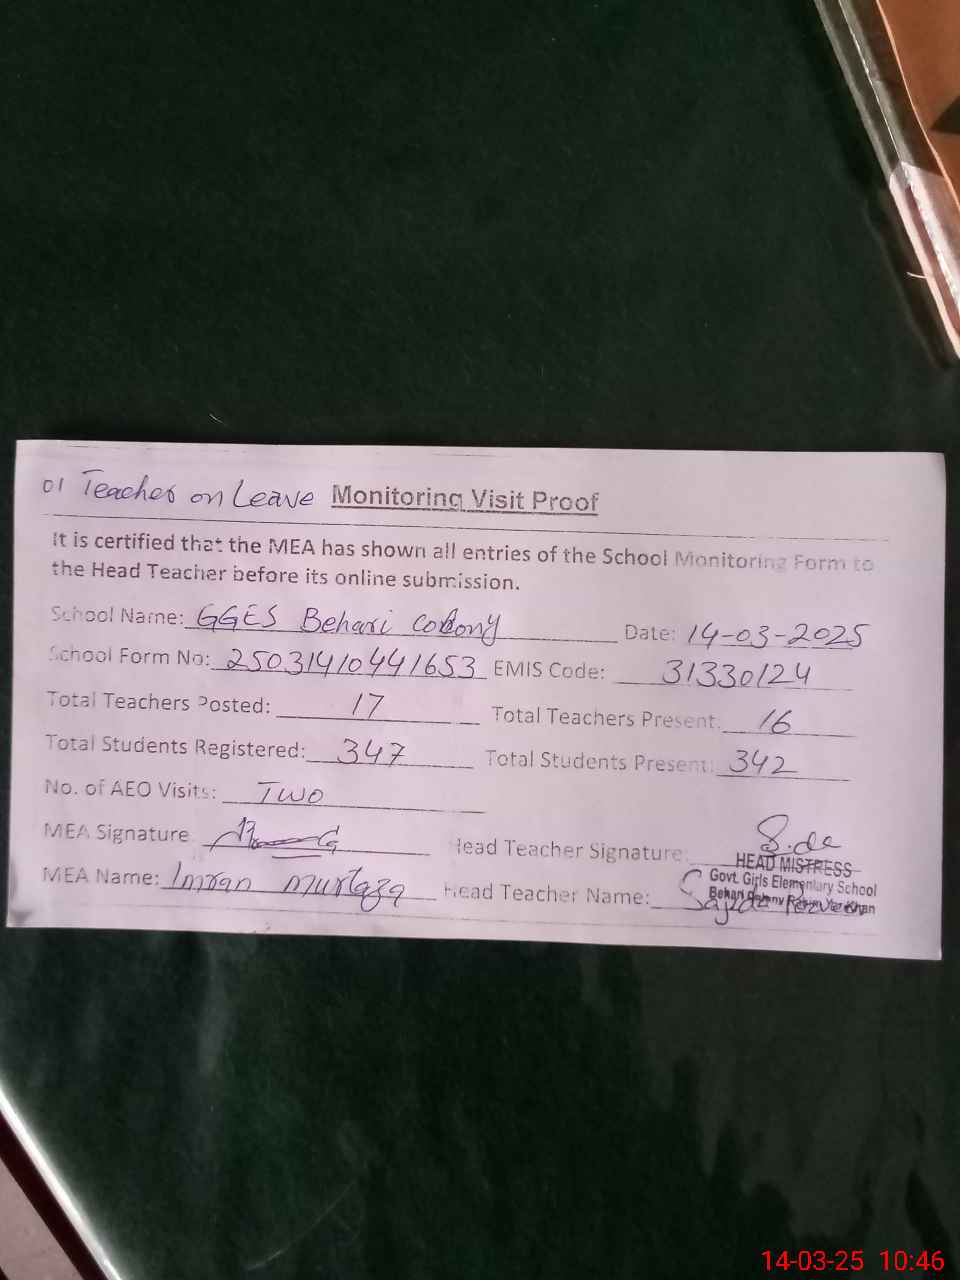 01 Teacher on Leave Monitoring Visit Proof
It is certified that the MEA has shown all entries of the School Monitoring Form to
the Head Teacher before its online submission.
School Name: GGES Behari colony Date: 14-03-2025
School Form No: 25031410441653 EMIS Code: 31330124
Total Teachers Posted: 17 Total Teachers Present: 16
Total Students Registered: 347 Total Students Present: 342
No. of AEO Visits: Two
MEA Signature Head Teacher Signature:
HEAD MISTRESS
Govt. Girls Elementary School
Behari Colony Rahim Yar Khan
MEA Name: Imran murtaza Head Teacher Name: Sajida
14-03-25 10:46